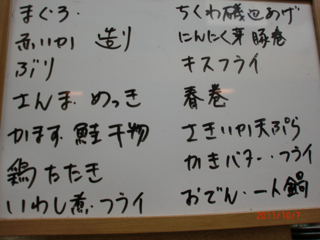 まぐろ.
赤いか 造り
ぶり
さんま.めっき
かます.鮭干物
鶏たたき
いわし煮.フライ
ちくわ磯辺あげ
にんにく芽豚巻
キスフライ
春巻
さきいか天ぷら
かきバター.フライ
おでん.一人鍋
2011/10/7